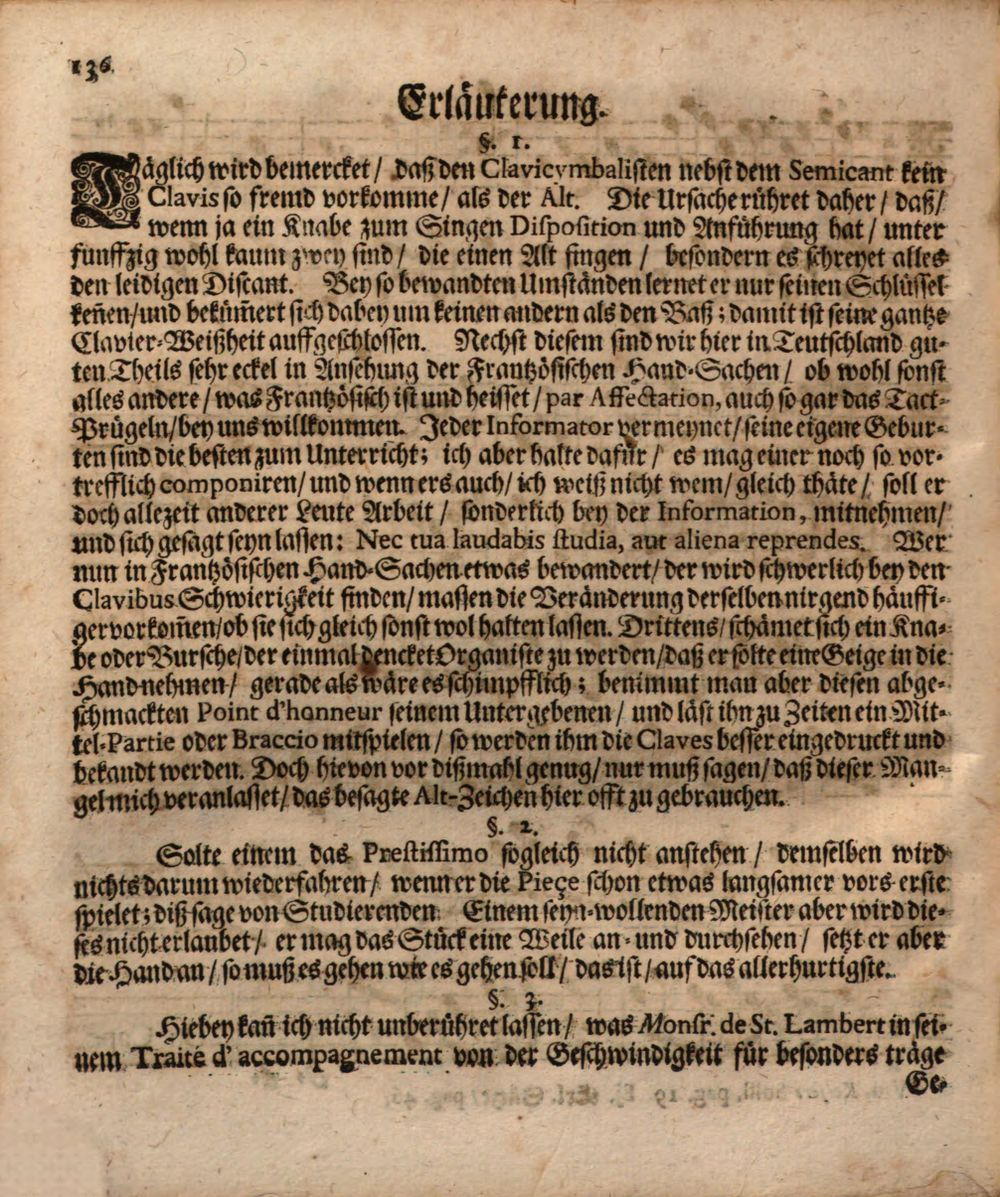 136
Erläuterung.
§. 1.
Täglich wird bemercket / daß den Clavicymbalisten nebst dem Semicant kein
Clavis so fremd vorkomme / als der Alt. Die Ursache rühret daher / daß /
wenn ja ein Knabe zum Singen Disposition und Anführung hat / unter
funffzig wohl kaum zwey sind / die einen Alt singen / besondern es schreyet alles
den leidigen Discant. Bey so bewandten Umständen lernet er nur seinen Schlüssel
keñen / und bekūm̄ert sich dabey um keinen andern als den Baß; damit ist seine gantze
Clavier-Weißheit auffgeschlossen. Nechst diesem sind wir hier in Teutschland gu-
ten Theils sehr eckel in Ansehung der Frantzösischen Hand-Sachen / ob wohl sonst
alles andere / was Frantzösisch ist und heisset / par Affectation, auch so gar das Tact-
Prügeln / bey uns willkommen. Jeder Informator vermeynet / seine eigene Gebur-
ten sind die besten zum Unterricht; ich aber halte dafür / es mag einer noch so vor-
trefflich componiren / und wenn ers auch / ich weiß nicht wem / gleich thäte / soll er
doch allezeit anderer Leute Arbeit / sonderlich bey der Information, mitnehmen /
und sich gesagt seyn lassen: Nec tua laudabis studia, aut aliena reprendes. Wer
nun in Frantzösischen Hand-Sachen etwas bewandert / der wird schwerlich bey den
Clavibus Schwierigkeit finden / massen die Veränderung derselben nirgend häuffi-
ger vorkom̄en / ob sie sich gleich sonst wol halten lassen. Drittens / schämet sich ein Kna-
be oder Bursche / der einmal dencket Organiste zu werden / daß er solte eine Geige in die
Hand nehmen / gerade als wäre es schimpfflich; benimmt man aber diesen abge-
schmackten Point d'honneur seinem Untergebenen / und läst ihn zu Zeiten ein Mit-
tel-Partie oder Braccio mitspielen / so werden ihm die Claves besser eingedruckt und
bekandt werden. Doch hievon vor dißmahl genug / nur muß sagen / daß dieser Man-
gel mich veranlasset / das besagte Alt-Zeichen hier offt zu gebrauchen.
§. 2.
Solte einem das Prestissimo sogleich nicht anstehen / demselben wird
nichts darum wiederfahren / wenn er die Pieçe schon etwas langsamer vors erste
spielet; diß sage von Studierenden. Einem seyn-wollenden Meister aber wird die-
ses nicht erlaubet / er mag das Stück eine Weile an- und durchsehen / setzt er aber
die Hand an / so muß es gehen wie es gehen soll / das ist / auf das allerhurtigste.
§. 3.
Hiebey kañ ich nicht unberühret lassen / was Monsr. de St. Lambert in sei-
nem Traité d' accompagnement von der Geschwindigkeit für besonders träge
Ge-